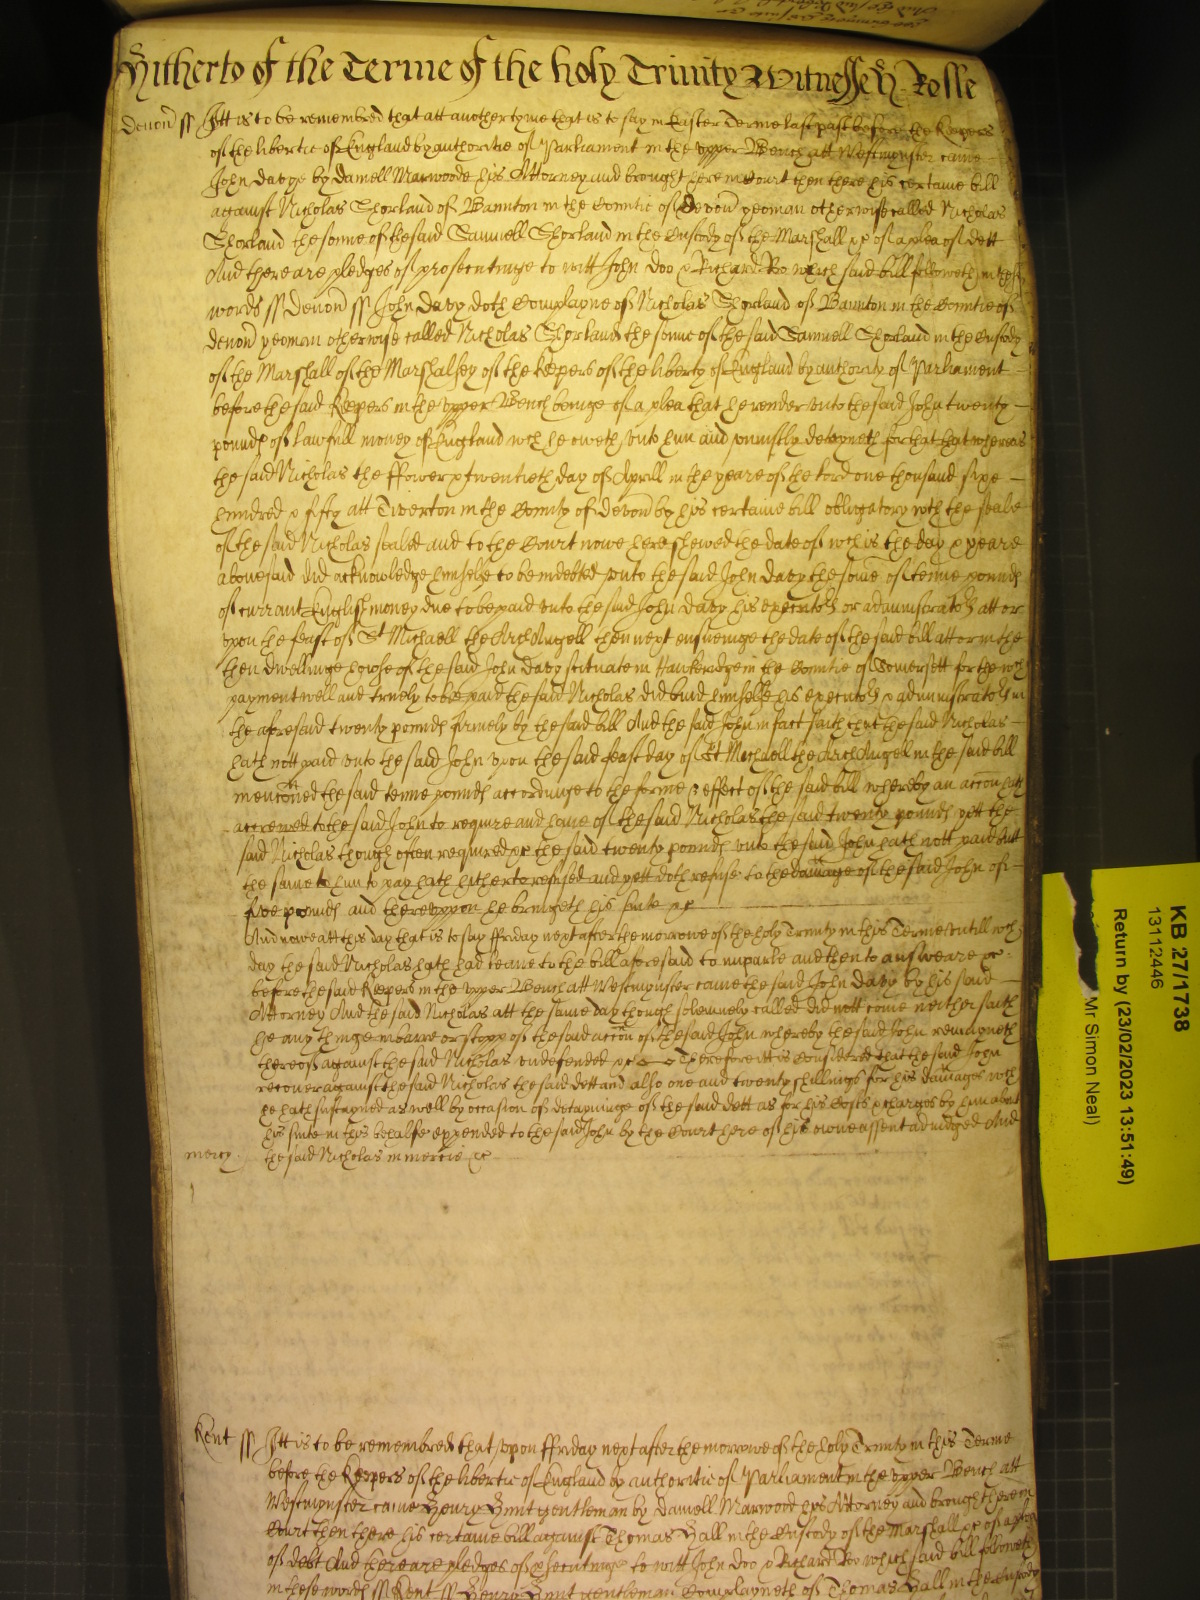 Hitherto of the Terme of the holy Trinity Witnesseth Rolle
Devon ss Itt is to be remembred that att another tyme that is to say in Easter Terme last past before the Keepers
of the libertie of England by authoritie of Parliament in the upper Bench att Westmynster came
John Davye by Daniell Marwoode his Attorney and brought here in Court then there his certaine bill
against Nicholas Shorland of Bannton in the Countie of Devon yeoman otherwise called Nicholas
Shorland the sonne of the said Samuell Shorland in the Custody of the Marshall &c of a plea of dett
And there are pledges of prosecutinge to witt John Doo & Richard Roo which said bill followeth in these
words ss Devon ss John Davy doth Complayne of Nicholas Shorland of Bannton in the Countie of
Devon yeoman otherwise called Nicholas Shorland the sonne of the said Samuell Shorland in the Custody
of the Marshall of the Marshalsey of the Keepers of the liberty of England by authority of Parliament
before the said Keepers in the upper Bench beinge of a plea that he render unto the said John twenty
pounds of lawfull money of England wch he oweth unto him and uniustly deteyneth for that that whereas
the said Nicholas the ffower & twentieth day of Aprill in the yeare of the lord one thousand sixe
hundred & fifty att Tiverton in the County of Devon by his certaine bill obligatory wth the seale
of the said Nicholas sealed and to the Court nowe here shewed the date of wch is the day & yeare
abovesaid did acknowledge himselfe to be indebted unto the said John Davy the some of tenne pounds
of currant English money due to be paid unto the said John Davy his executors or administrators att or
upon the feast of St Michaell the ArchAngell then next ensueinge the date of the said bill att or in the
then dwellinge howse of the said John Davy scituate in Hawkridge in the Countie of Somersett for the wch
payment well and truely to be paid the said Nicholas did bind himselfe his executors & administrators in
the aforesaid twenty pounds firmely by the said bill And the said John in fact saith that the said Nicholas
hath nott paid unto the said John upon the said feast day of St Michaell the ArchAngel in the said bill
mencioned the said tenne pounds accordinge to the forme & effect of the said bill whereby an accon hath
accrewed to the said John to require and have of the said Nicholas the said twenty pounds yett the
said Nicholas though often required &c the said twenty pounds unto the said John hath nott paid butt
the same to him to pay hath hitherto refused and yett doth refuse to the damage of the said John of
five pounds and thereuppon he bringeth his suite &c
And nowe att this day that is to say ffriday next after the morrowe of the holy Trinity in this Terme untill wch
day the said Nicholas hath had leave to the bill aforesaid to imparle and then to answeare &c
before the said Keepers in the upper Bench att Westmynster came the said John Davy by his said
Attorney And the said Nicholas att the same day though solemnely called did nott come neither saith
he any thinge in barre or stopp of the said accon of the said John whereby the said John remayneth
thereof against the said Nicholas undefended &c Therefore itt is Considered that the said John
recover against the said Nicholas the said dett and also one and twenty shillings for his damages wch
he hath susteyned as well by occasion of detayninge of the said dett as for his Costs & charges by him about
his suite in this behalfe expended to the said John by the Court here of his owne assent adiudged And
mercy the said Nicholas in mercie &c
Kent ss Itt is to be remembred that upon ffriday next after the morrowe of the holy Trinity in this Terme
before the Keepers of the libertie of England by authoritie of Parliament in the upper Bench att
Westmynster came Henry gentleman by Daniell Marwood his Attorney and brought here in
Court then there his certaine bill against Thomas Hall in the Custody of the Marshall &c of a plea
of debt And there are pledges of prosecutinge to witt John Doo & Richard Roo which said bill followeth
in these words ss Kent ss Henry gentleman Complayneth of Thomas Hall in the Custody
KB 27/1738
13112446
Return by (23/02/2023 13:51:49)
Mr Simon Neal)